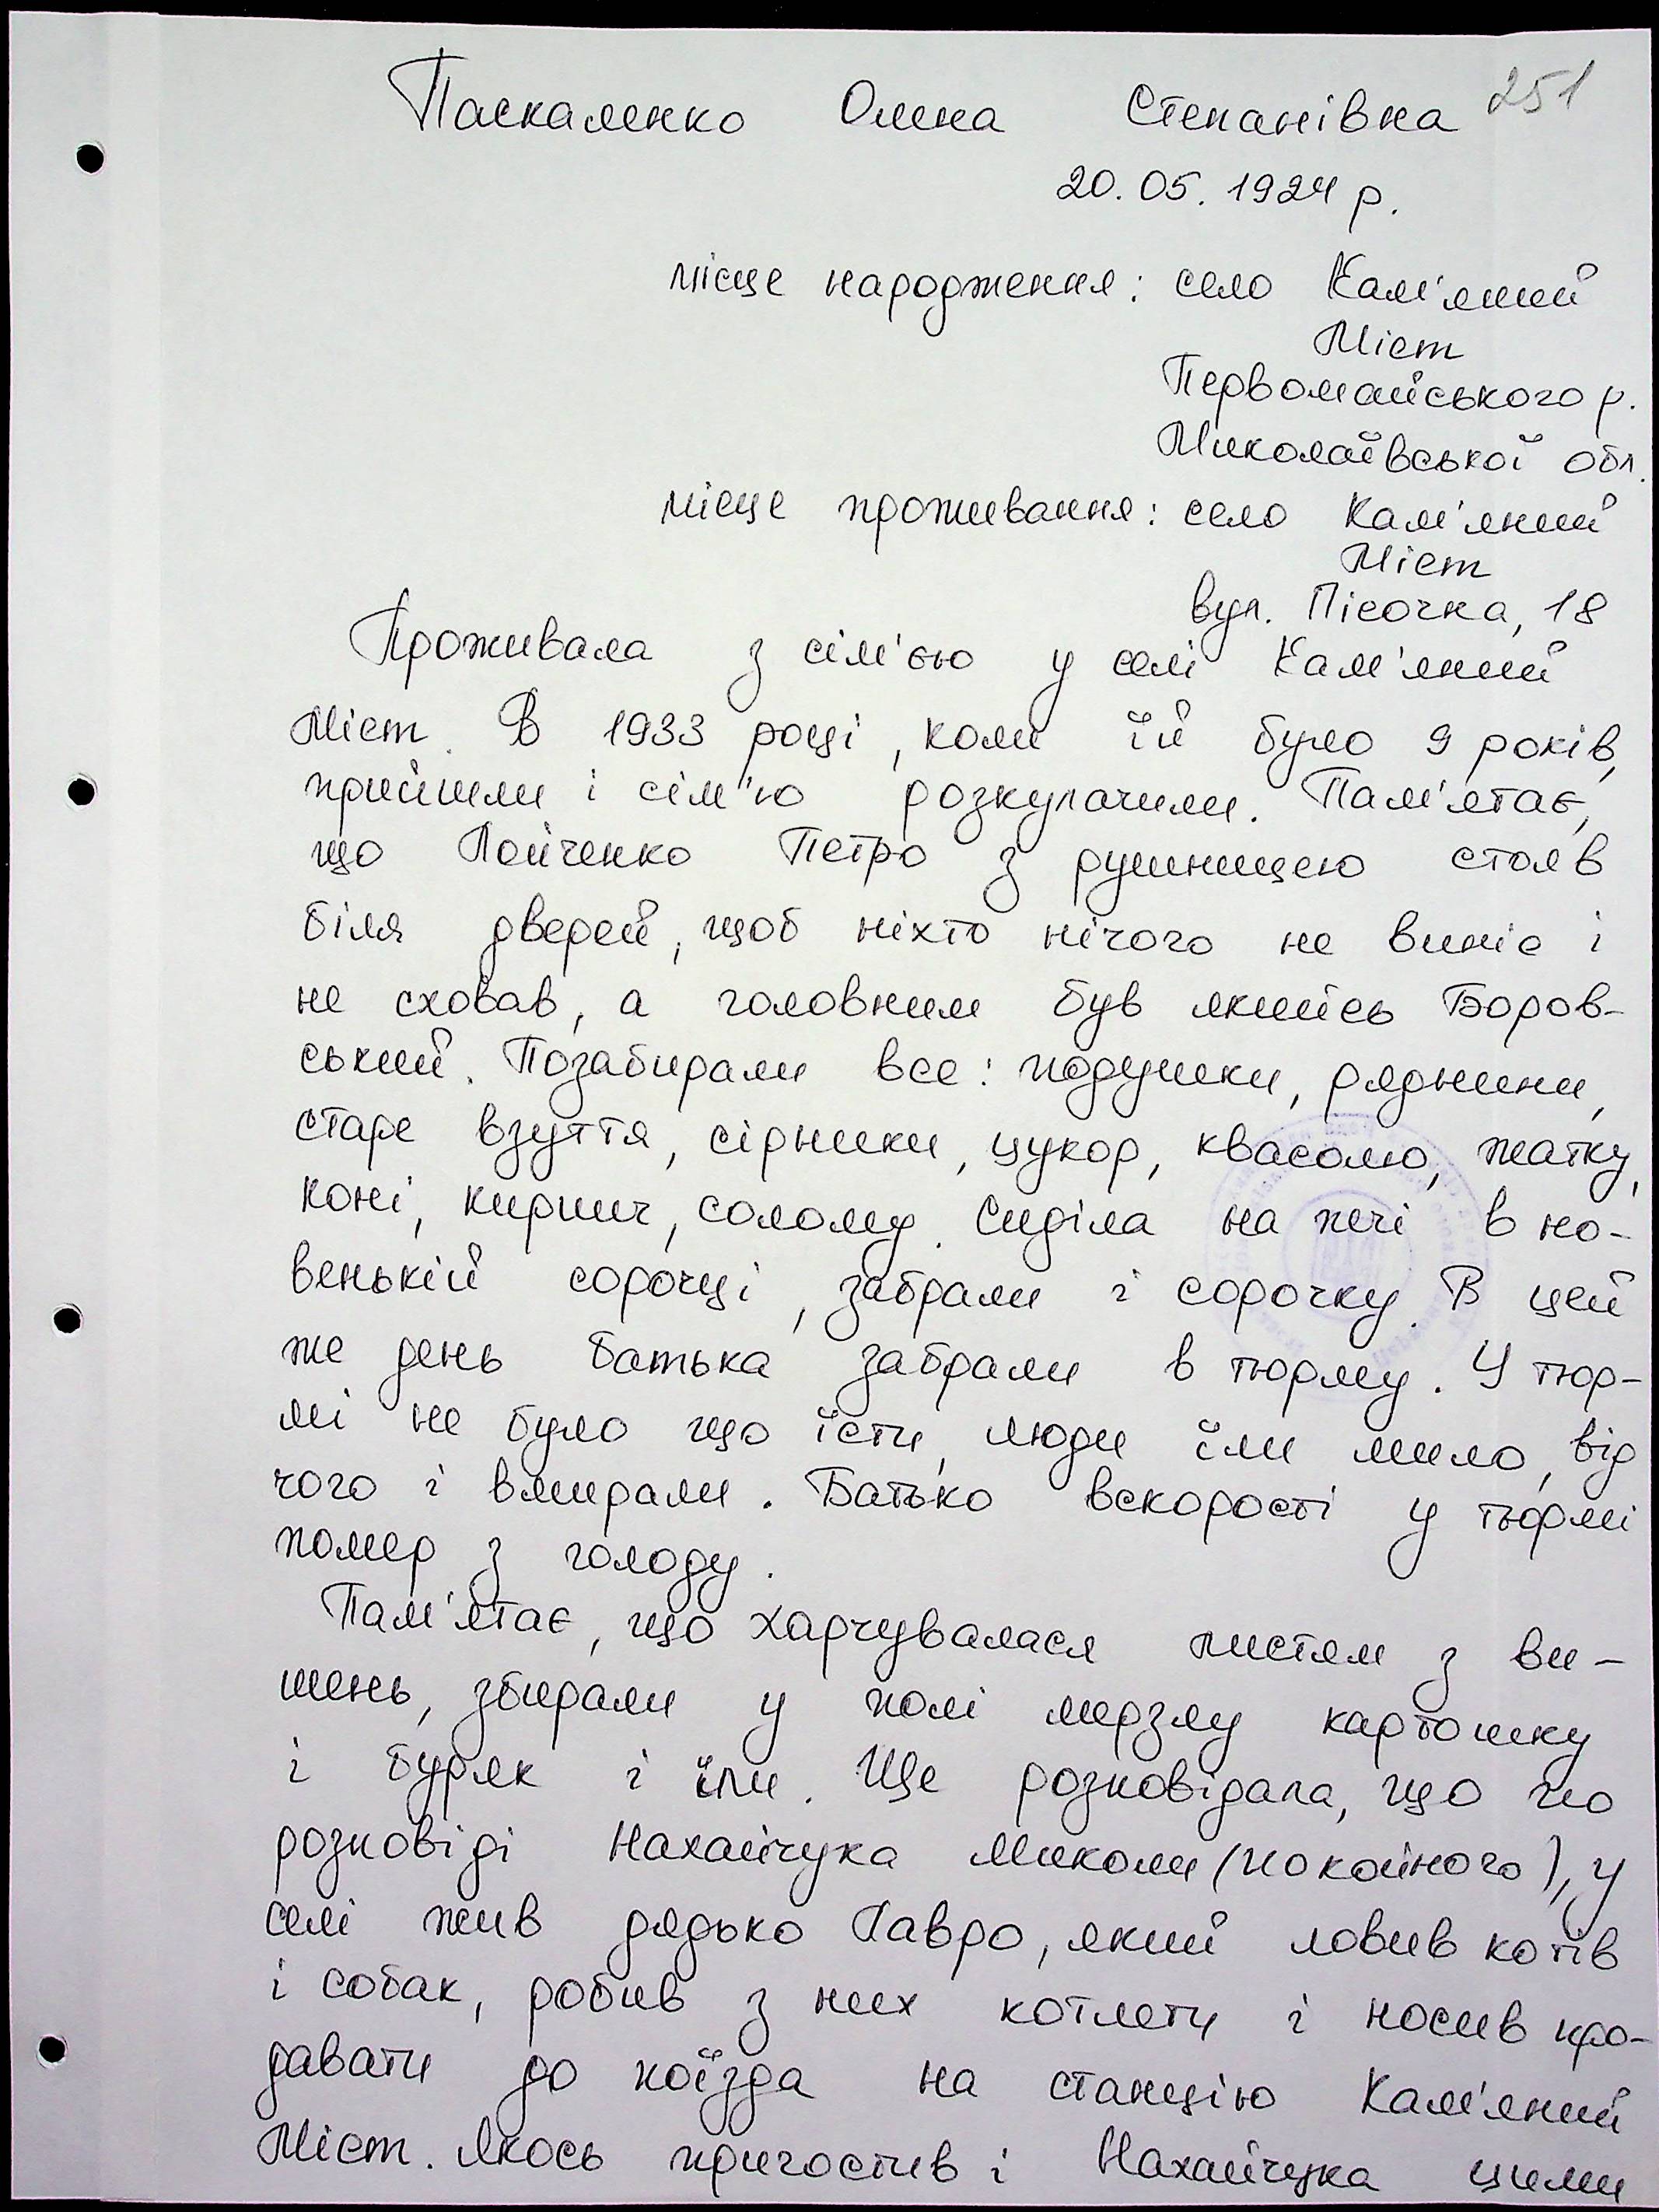 Паскаленко Олена Степанівна 251
20.05.1924 р.
місце народження: село Кам'яний
Міст
Первомайського р.
Миколаївської обл.
місце проживання: село Кам'яний
Міст
вул. Пісочна, 18
Проживала з сім'єю у селі Кам'яний
Міст. В 1933 році, коли їй було 9 років,
прийшли і сім"ю розкулачили. Пам'ятає,
що Лойченко Петро з рушницею стояв
біля дверей, щоб ніхто нічого не виніс і
не сховав, а головним був якийсь Боров-
ський. Позабирали все: подушки, ряднини,
старе взуття, сірники, цукор, квасолю, жатку,
коні, кирпич, солому. Сиділа на печі в но-
венькій сорочці, забрали і сорочку. В цей
же день батька забрали в тюрму. У тюр-
мі не було що їсти, люди їли мило, від
чого і вмирали. Батько вскорості у тюрмі
помер з голоду.
Пам'ятає, що харчувалася листям з ви-
шень, збирали у полі мерзлу картошку
і буряк і їли. Ще розповідала, що по
розповіді Нахайчука Миколи (покойного), у
селі жив дядько Лавро, який ловив котів
і собак, робив з них котлети і носив про-
давати до поїзда на станцію Кам'яний
Міст. Якось пригостив і Нахайчука цими